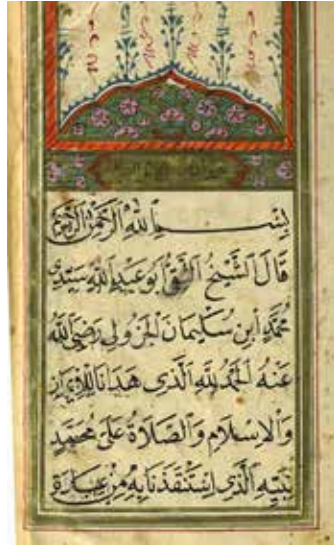 بِسْمِ اللهِ الرَّحْمٰنِ الرَّحِيمِ
قَالَ الشَّيْخُ أَبُو عَبْدِ اللهِ سَيِّدِى
مُحَمَّدِ ابْنِ سُلَيْمَانَ الْجَزُولِى رَضِىَ اللهُ
عَنْهُ الْحَمْدُ لِلّٰهِ الَّذِى هَدَانَا لِلْاِيمَانِ
وَالْاِسْلَامِ وَالصَّلَاةُ عَلَى مُحَمَّدٍ
نَبِيِّهِ الَّذِى اسْتَنْقَذَنَا بِهِ مِنْ عِبَادَةِ